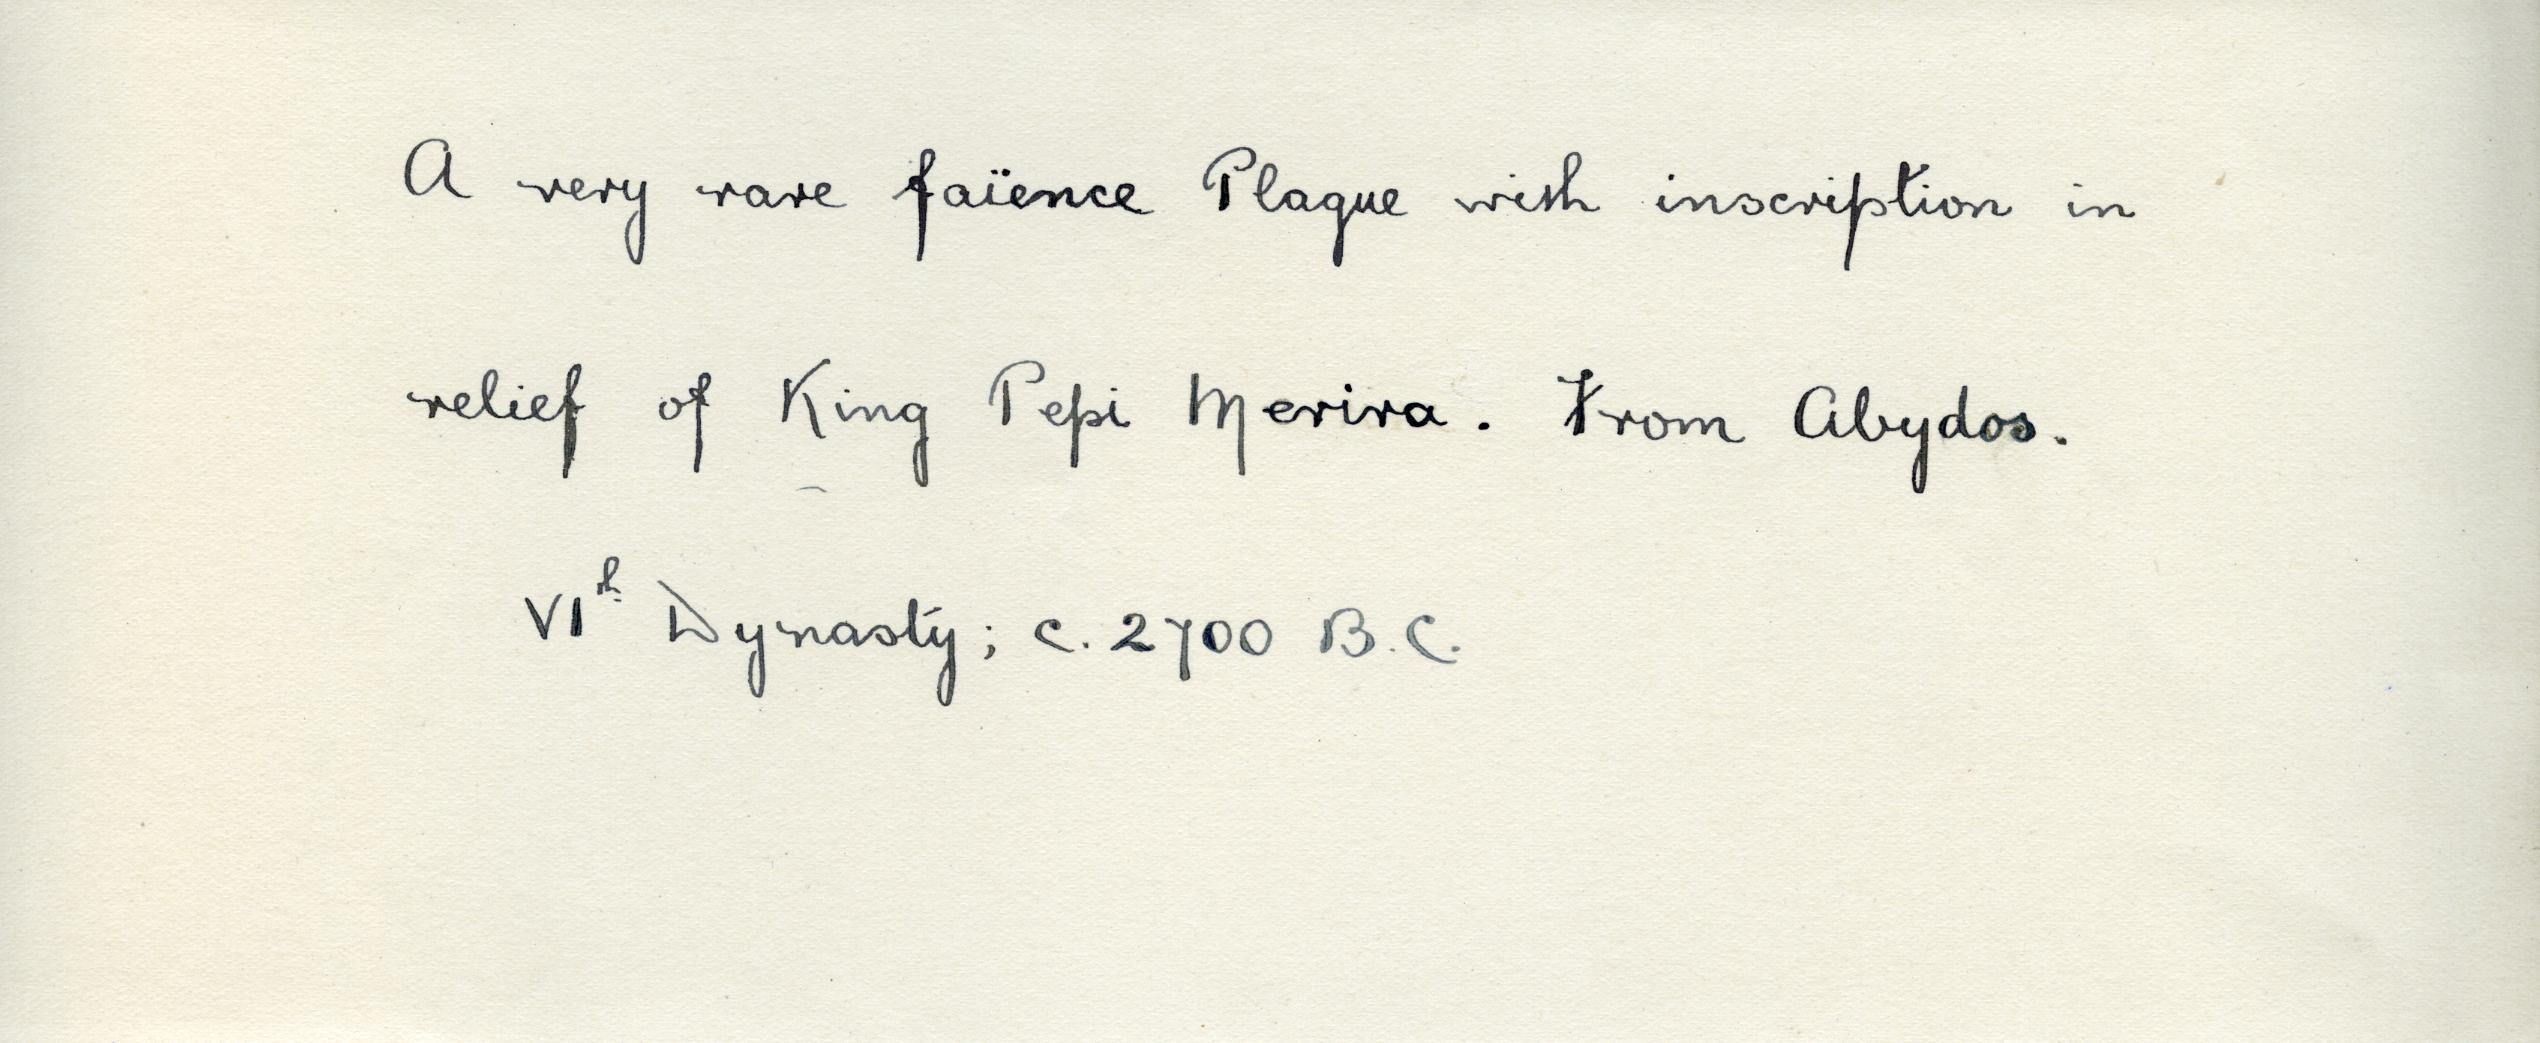 A very rare faïence Plaque with inscription in
relief of King Pepi Merira. From Abydos.
VIth Dynasty; c. 2700 B.C.